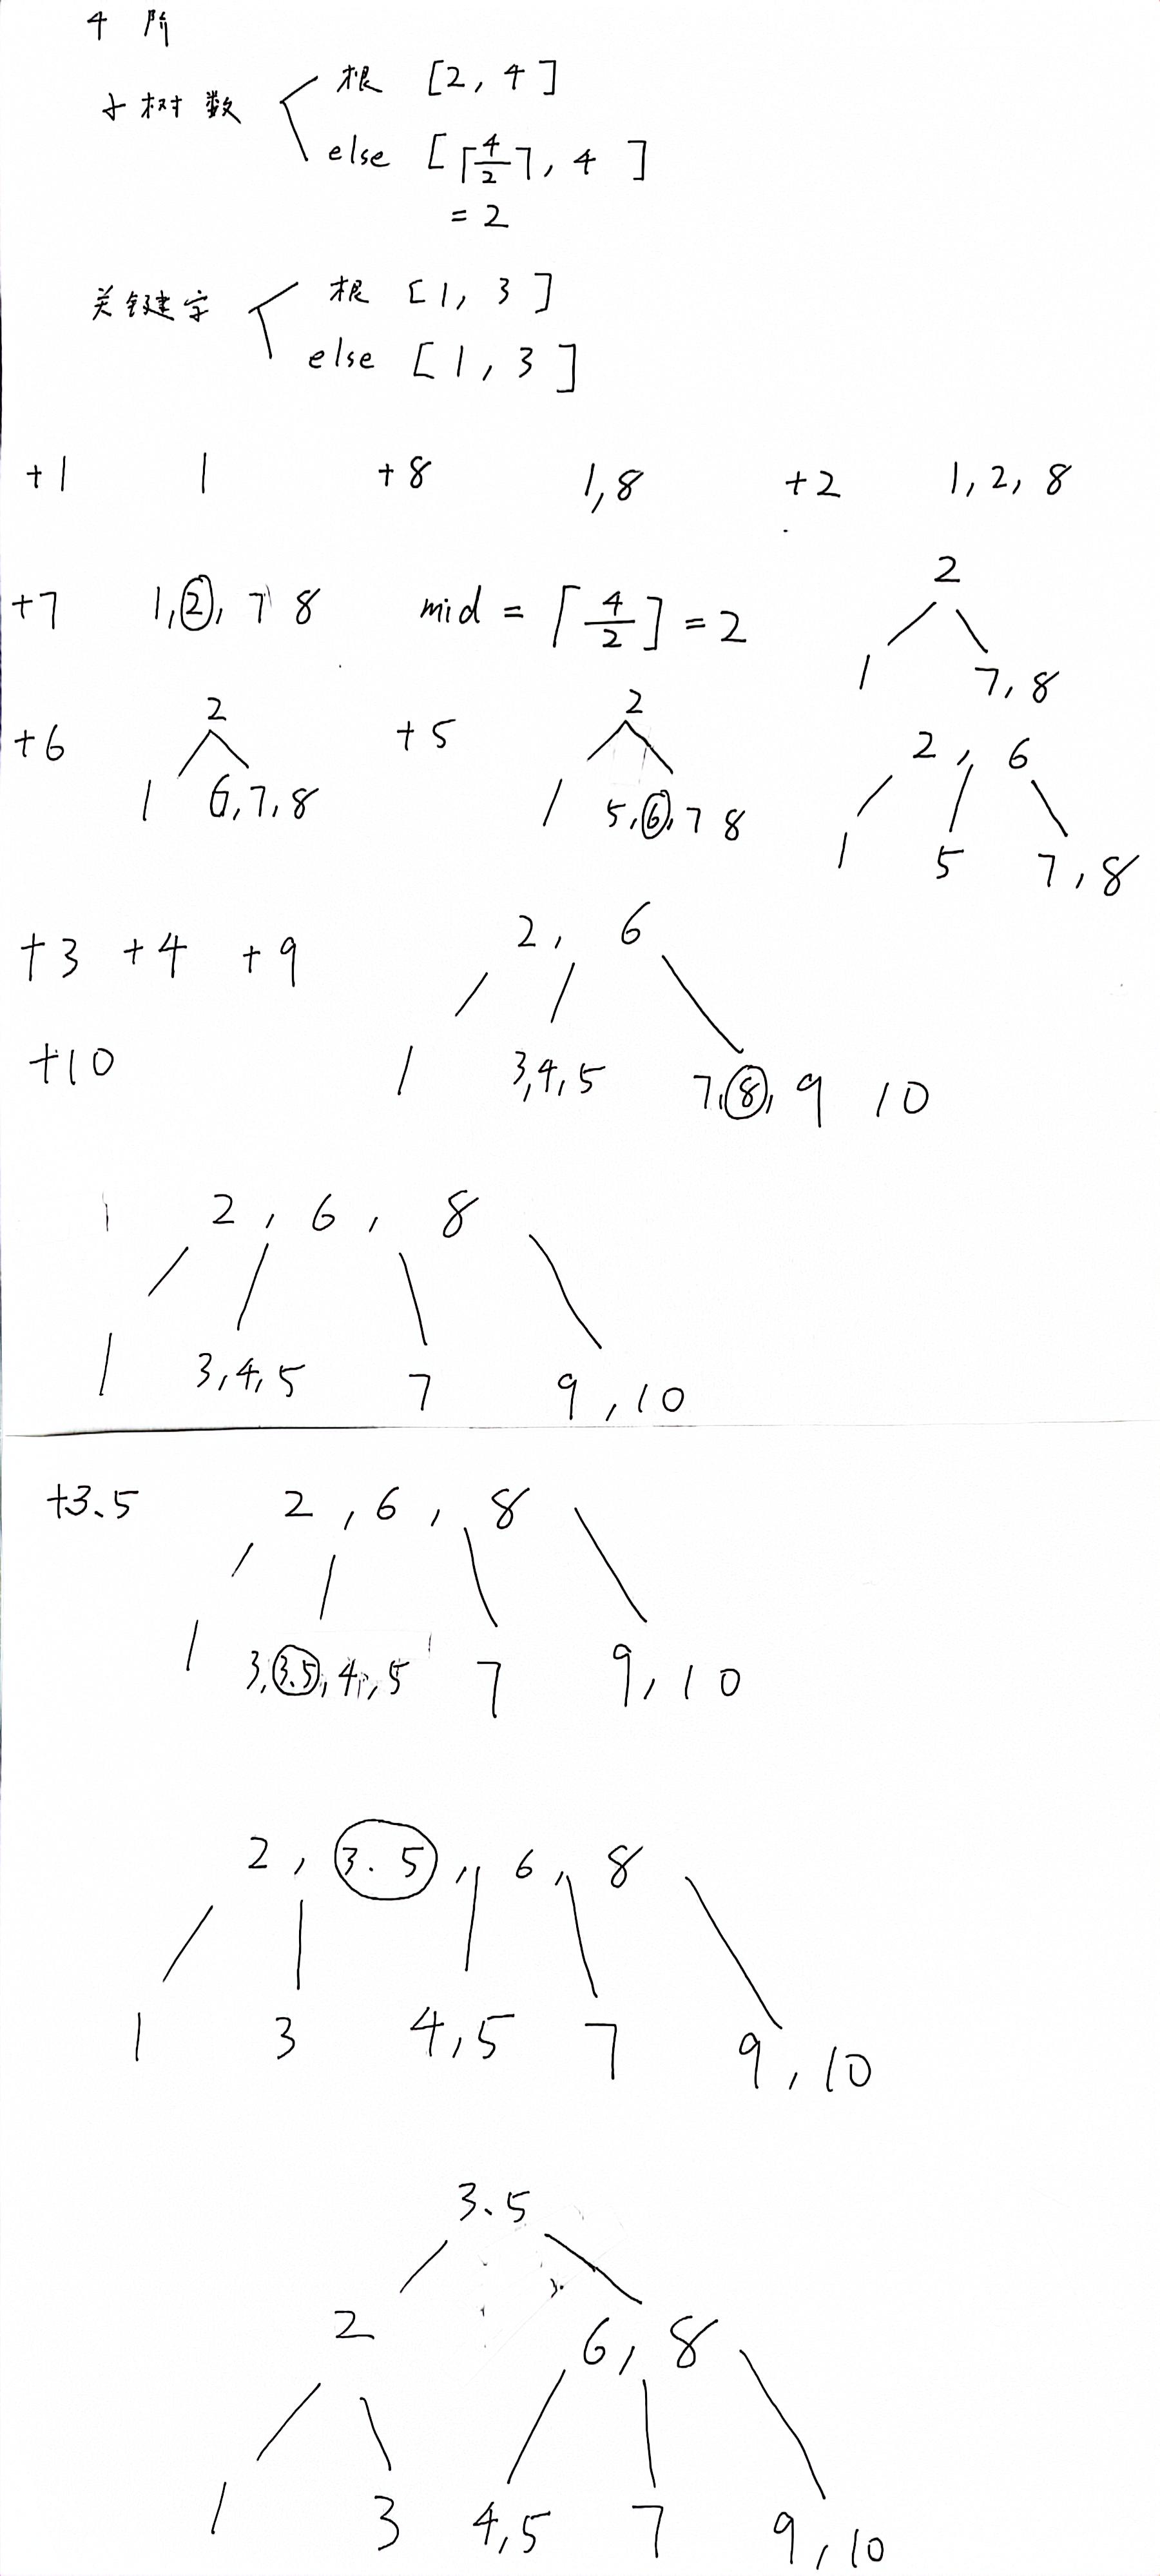 4 阶
子树数 根 [2, 4]
else [⌈4/2⌉, 4 ]
= 2
关键字 根 [1, 3]
else [1, 3]
+1 1 +8 1,8 +2 1, 2, 8
+7 1,②, 7 8 mid = ⌈4/2⌉ = 2
2
1 7, 8
+6 2 +5 2 2, 6
1 6,7,8 1 5,⑥,7 8 1 5 7, 8
+3 +4 +9 2, 6
+10 1 3,4,5 7,⑧, 9 10
2, 6, 8
1 3,4,5 7 9, 10
+3.5 2, 6, 8
1 3,3.5,4,5 7 9, 10
2, 3.5, 6, 8
1 3 4,5 7 9, 10
3.5
2 6, 8
1 3 4,5 7 9, 10